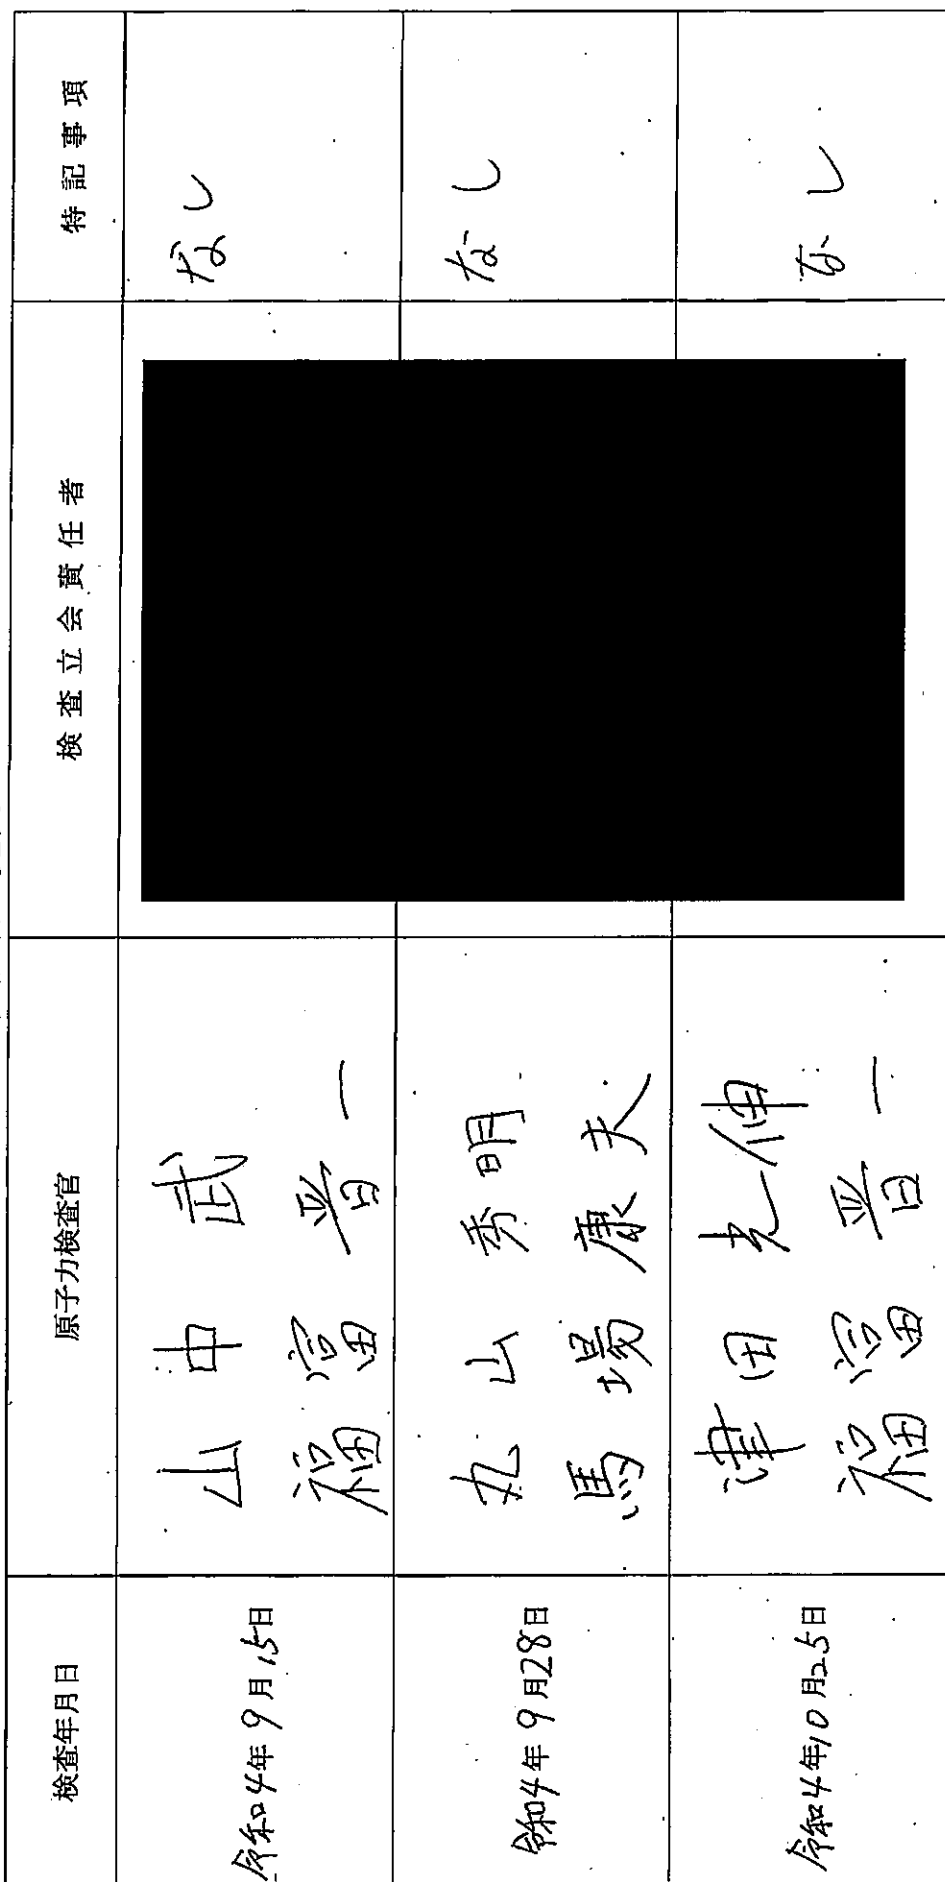 検査年月日 原子力検査官 検査立会責任者 特記事項
令和4年9月15日 山中 武 なし
福冨 晋一
令和4年9月28日 丸山 秀明 なし
馬場 康夫
令和4年10月25日 津田 伸 なし
福冨 晋一